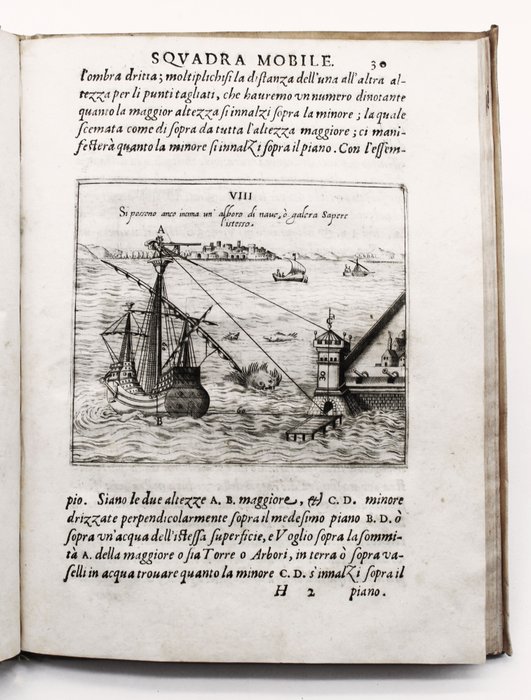 SQVADRA MOBILE. 30
l'ombra dritta; moltiplichisi la distanza dell'una all'altra al-
tezza per li punti tagliati, che hauremo vn numero dinotante
quanto la maggior altezza si innalzi sopra la minore; la quale
scemata come di sopra da tutta l'altezza maggiore; ci mani-
festerà quanto la minore si innalzi sopra il piano. Con l'essem-
VIII
Si possono anco incima un' alboro di naue, ò galera Sapere
l'istesso.
A
C
D
B
pio. Siano le due altezze A. B. maggiore, & C. D. minore
drizzate perpendicolarmente sopra il medesimo piano B. D. ò
sopra vn'acqua dell'istessa superficie, e Voglio sopra la sommi-
tà A. della maggiore o sia Torre o Arbori, in terra ò sopra va-
selli in acqua trouare quanto la minore C. D. s'innalzi sopra il
H 2 piano.